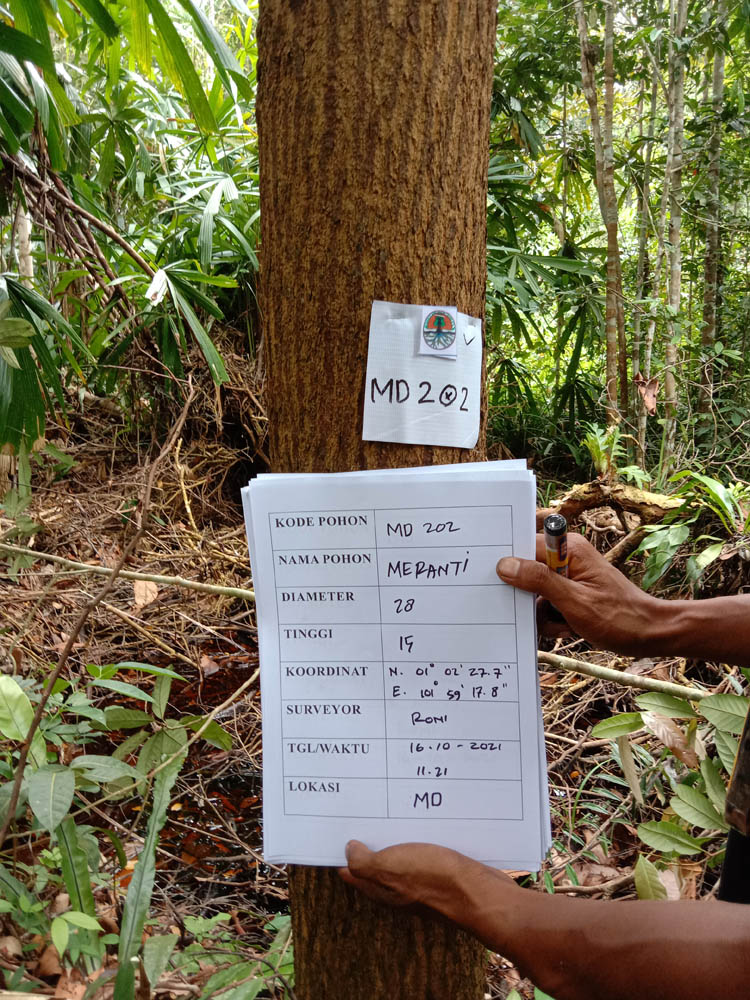 MD 202
KODE POHON MD 202
NAMA POHON MERANTI
DIAMETER 28
TINGGI 15
KOORDINAT N. 01° 02' 27.7"
E. 101° 59' 17.8"
SURVEYOR RONI
TGL/WAKTU 16-10-2021
11.21
LOKASI MD